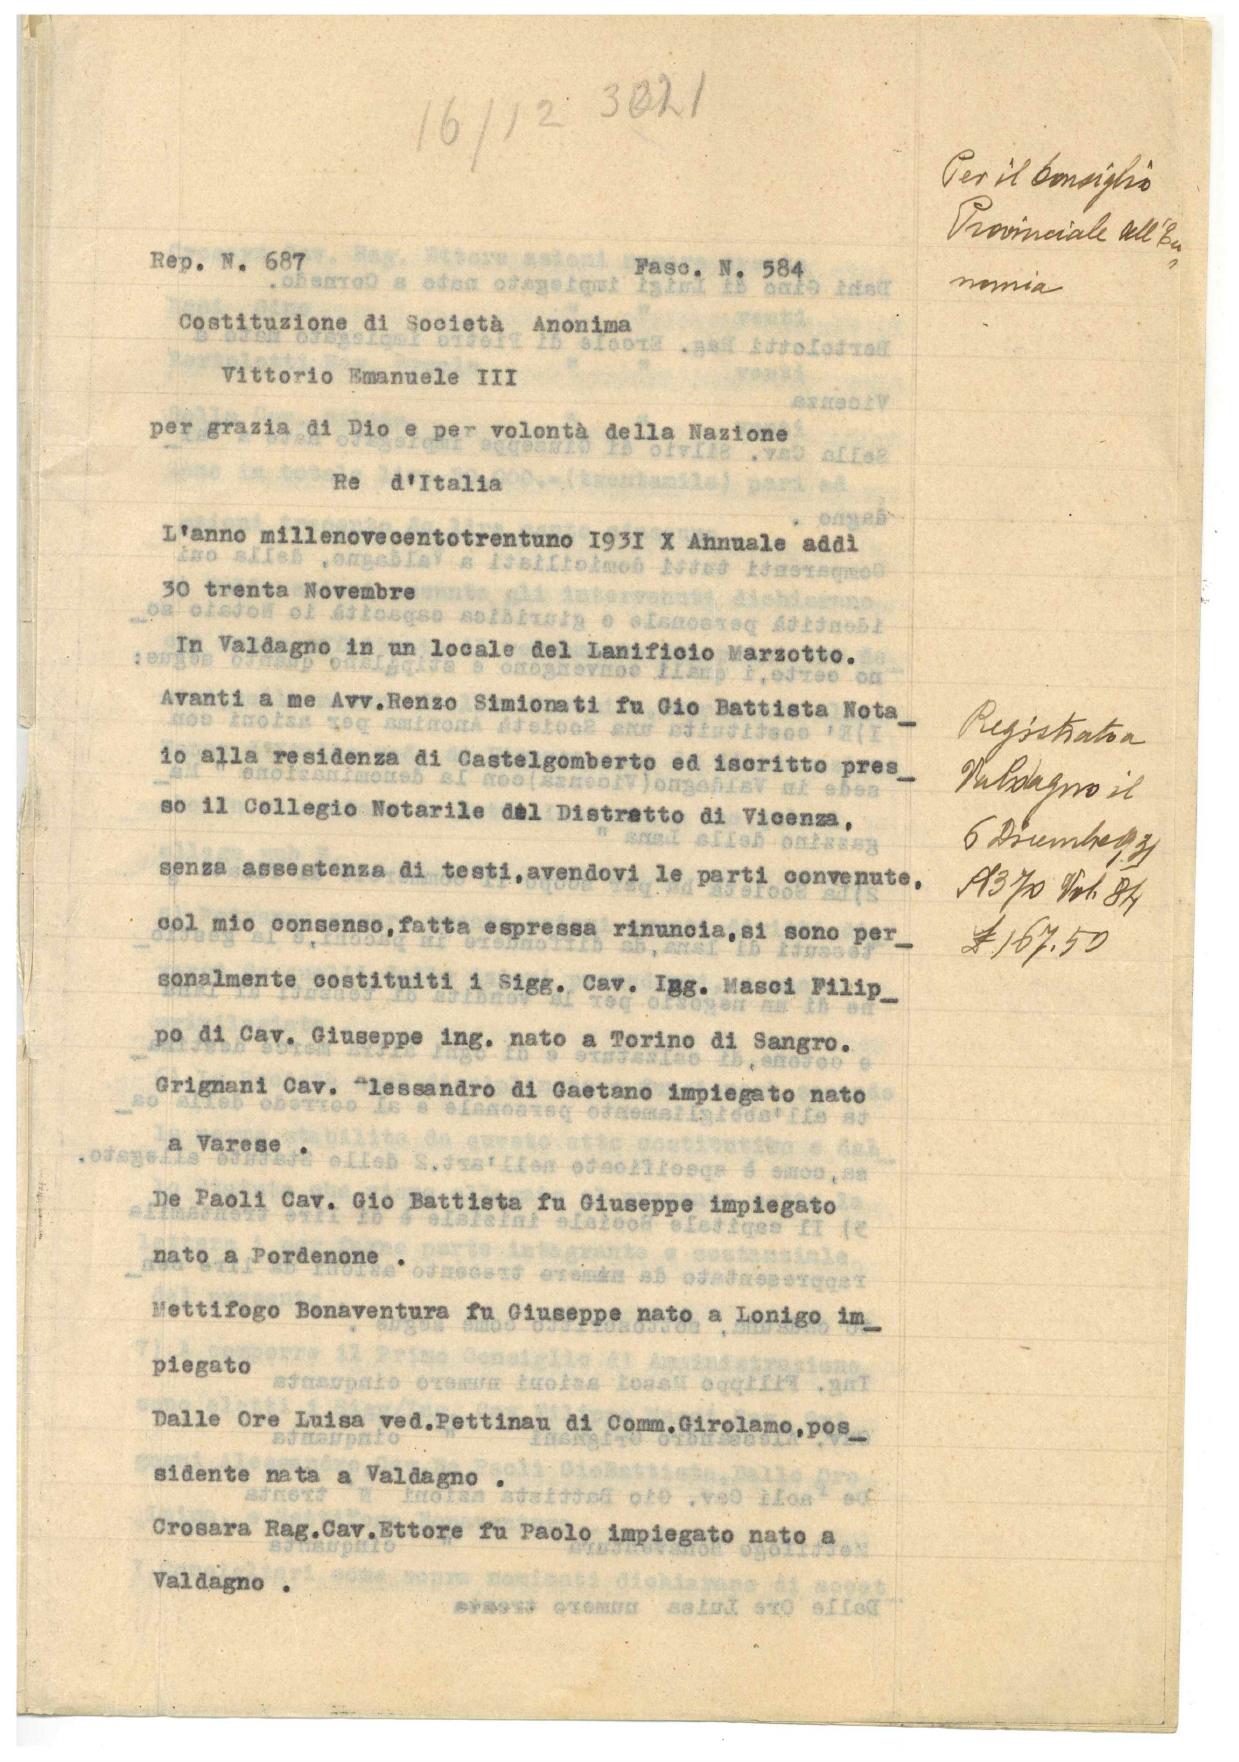 16/12 3021
Per il Consiglio
Provinciale dell'Eco
nomia
Rep. N. 687 Fasc. N. 584
Costituzione di Società Anonima
Vittorio Emanuele III
per grazia di Dio e per volontà della Nazione
Re d'Italia
L'anno millenovecentotrentuno I93I X Annuale addì
30 trenta Novembre
In Valdagno in un locale del Lanificio Marzotto.
Avanti a me Avv.Renzo Simionati fu Gio Battista Nota_
io alla residenza di Castelgomberto ed iscritto pres_
so il Collegio Notarile del Distretto di Vicenza,
senza assestenza di testi,avendovi le parti convenute,
col mio consenso,fatta espressa rinuncia,si sono per_
sonalmente costituiti i Sigg. Cav. Ing. Masci Filip_
po di Cav. Giuseppe ing. nato a Torino di Sangro.
Grignani Cav. Alessandro di Gaetano impiegato nato
a Varese .
De Paoli Cav. Gio Battista fu Giuseppe impiegato
nato a Pordenone .
Mettifogo Bonaventura fu Giuseppe nato a Lonigo im_
piegato
Dalle Ore Luisa ved.Pettinau di Comm.Girolamo,pos_
sidente nata a Valdagno .
Crosara Rag.Cav.Ettore fu Paolo impiegato nato a
Valdagno .
Registrato a
Valdagno il
6 Dicembre 931
N370 Vol. 84
£ 167.50